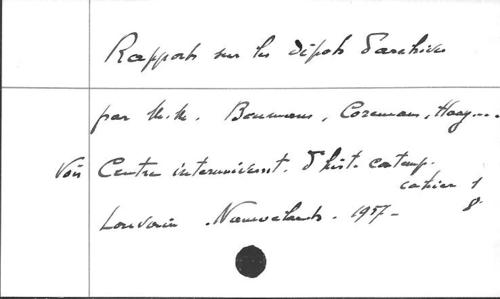 Rapports sur les dépôts d'archives
par M.M. Boumans, Coremans, Haag...
Voir Centre interuniversit. d'hist. contemp.
cahier 1
Louvain Nauwelaerts. 1957 - 8